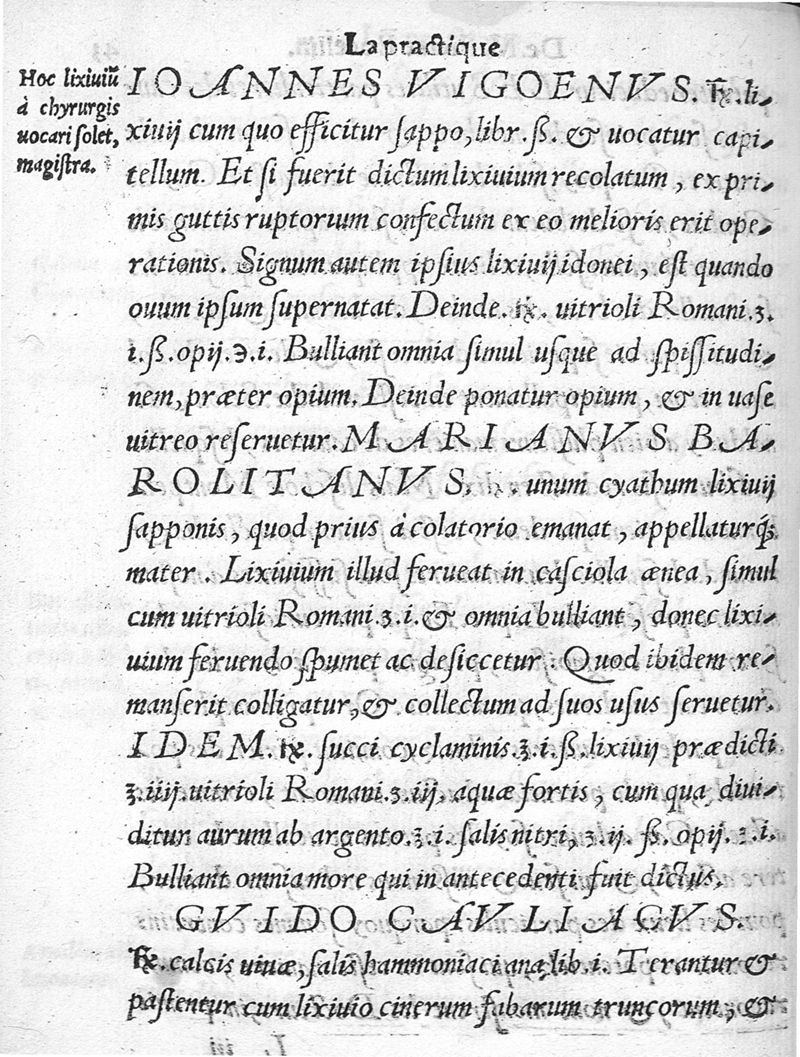 La practique
Hoc lixiuiũ
à chyrurgis
uocari solet,
magistra.
IOANNES VIGOENVS. ℞. li-
xiuij cum quo efficitur sappo, libr. ß. & uocatur capi-
tellum. Et si fuerit dictum lixiuium recolatum, ex pri-
mis guttis ruptorium confectum ex eo melioris erit ope-
rationis. Signum autem ipsius lixiuij idonei, est quando
ouum ipsum supernatat. Deinde. ℞. uitrioli Romani. ʒ.
i. ß. opij. ℈. i. Bulliant omnia simul usque ad spissitudi-
nem, præter opium. Deinde ponatur opium, & in uase
uitreo reseruetur. MARIANVS BA-
ROLITANVS. ℞. unum cyathum lixiuij
sapponis, quod prius à colatorio emanat, appellaturq́;
mater. Lixiuium illud ferueat in casciola ænea, simul
cum uitrioli Romani. ʒ. i. & omnia bulliant, donec lixi-
uium feruendo spumet ac desiccetur: Quod ibidem re-
manserit colligatur, & collectum ad suos usus seruetur.
IDEM. ℞. succi cyclaminis. ℥. i. ß. lixiuij prædicti
℥. iiij. uitrioli Romani. ʒ. iij. aquæ fortis, cum qua diui-
ditur aurum ab argento. ℥. i. salis nitri, ʒ. ii. ß. opij. ʒ. i.
Bulliant omnia more qui in antecedenti fuit dictus.
GVIDO CAVLIACVS.
℞. calcis uiuæ, salis hammoniaci ana lib. i. Terantur &
pastentur cum lixiuio cinerum fabarum truncorum, &